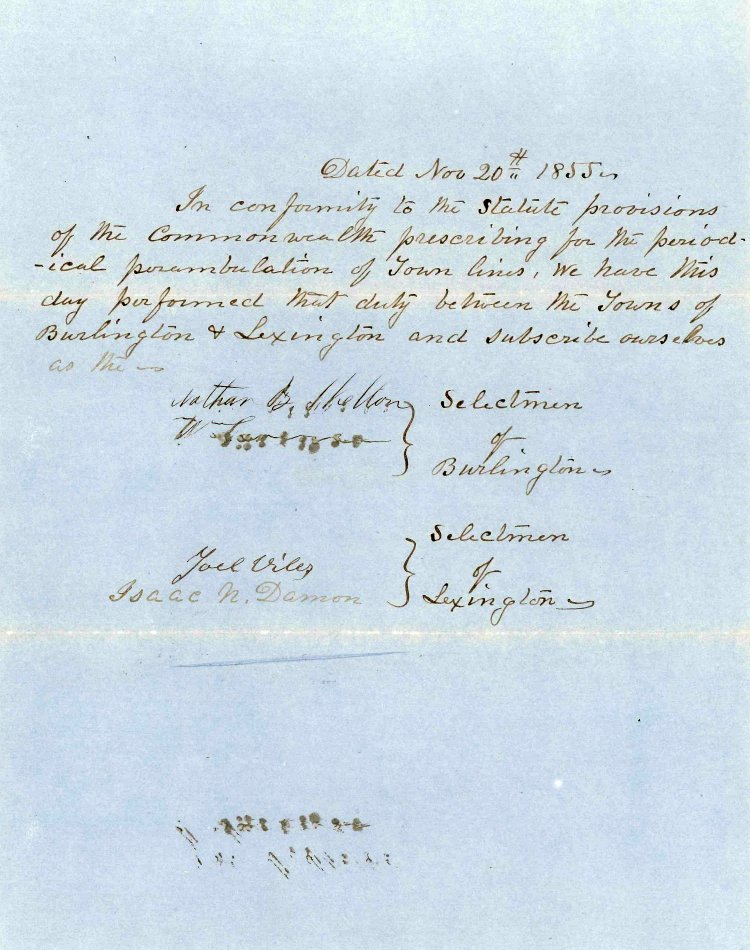 Dated Nov 20th 1855
In conformity to the Statute provisions
of the Commonwealth prescribing for the period-
-ical perambulation of Town lines, We have this
day performed that duty between the Towns of
Burlington & Lexington and subscribe ourselves
as the
Nathan B. Skelton
Selectmen
Wm
of
Burlington
Selectmen
Joel Viles
of
Isaac N. Damon
Lexington